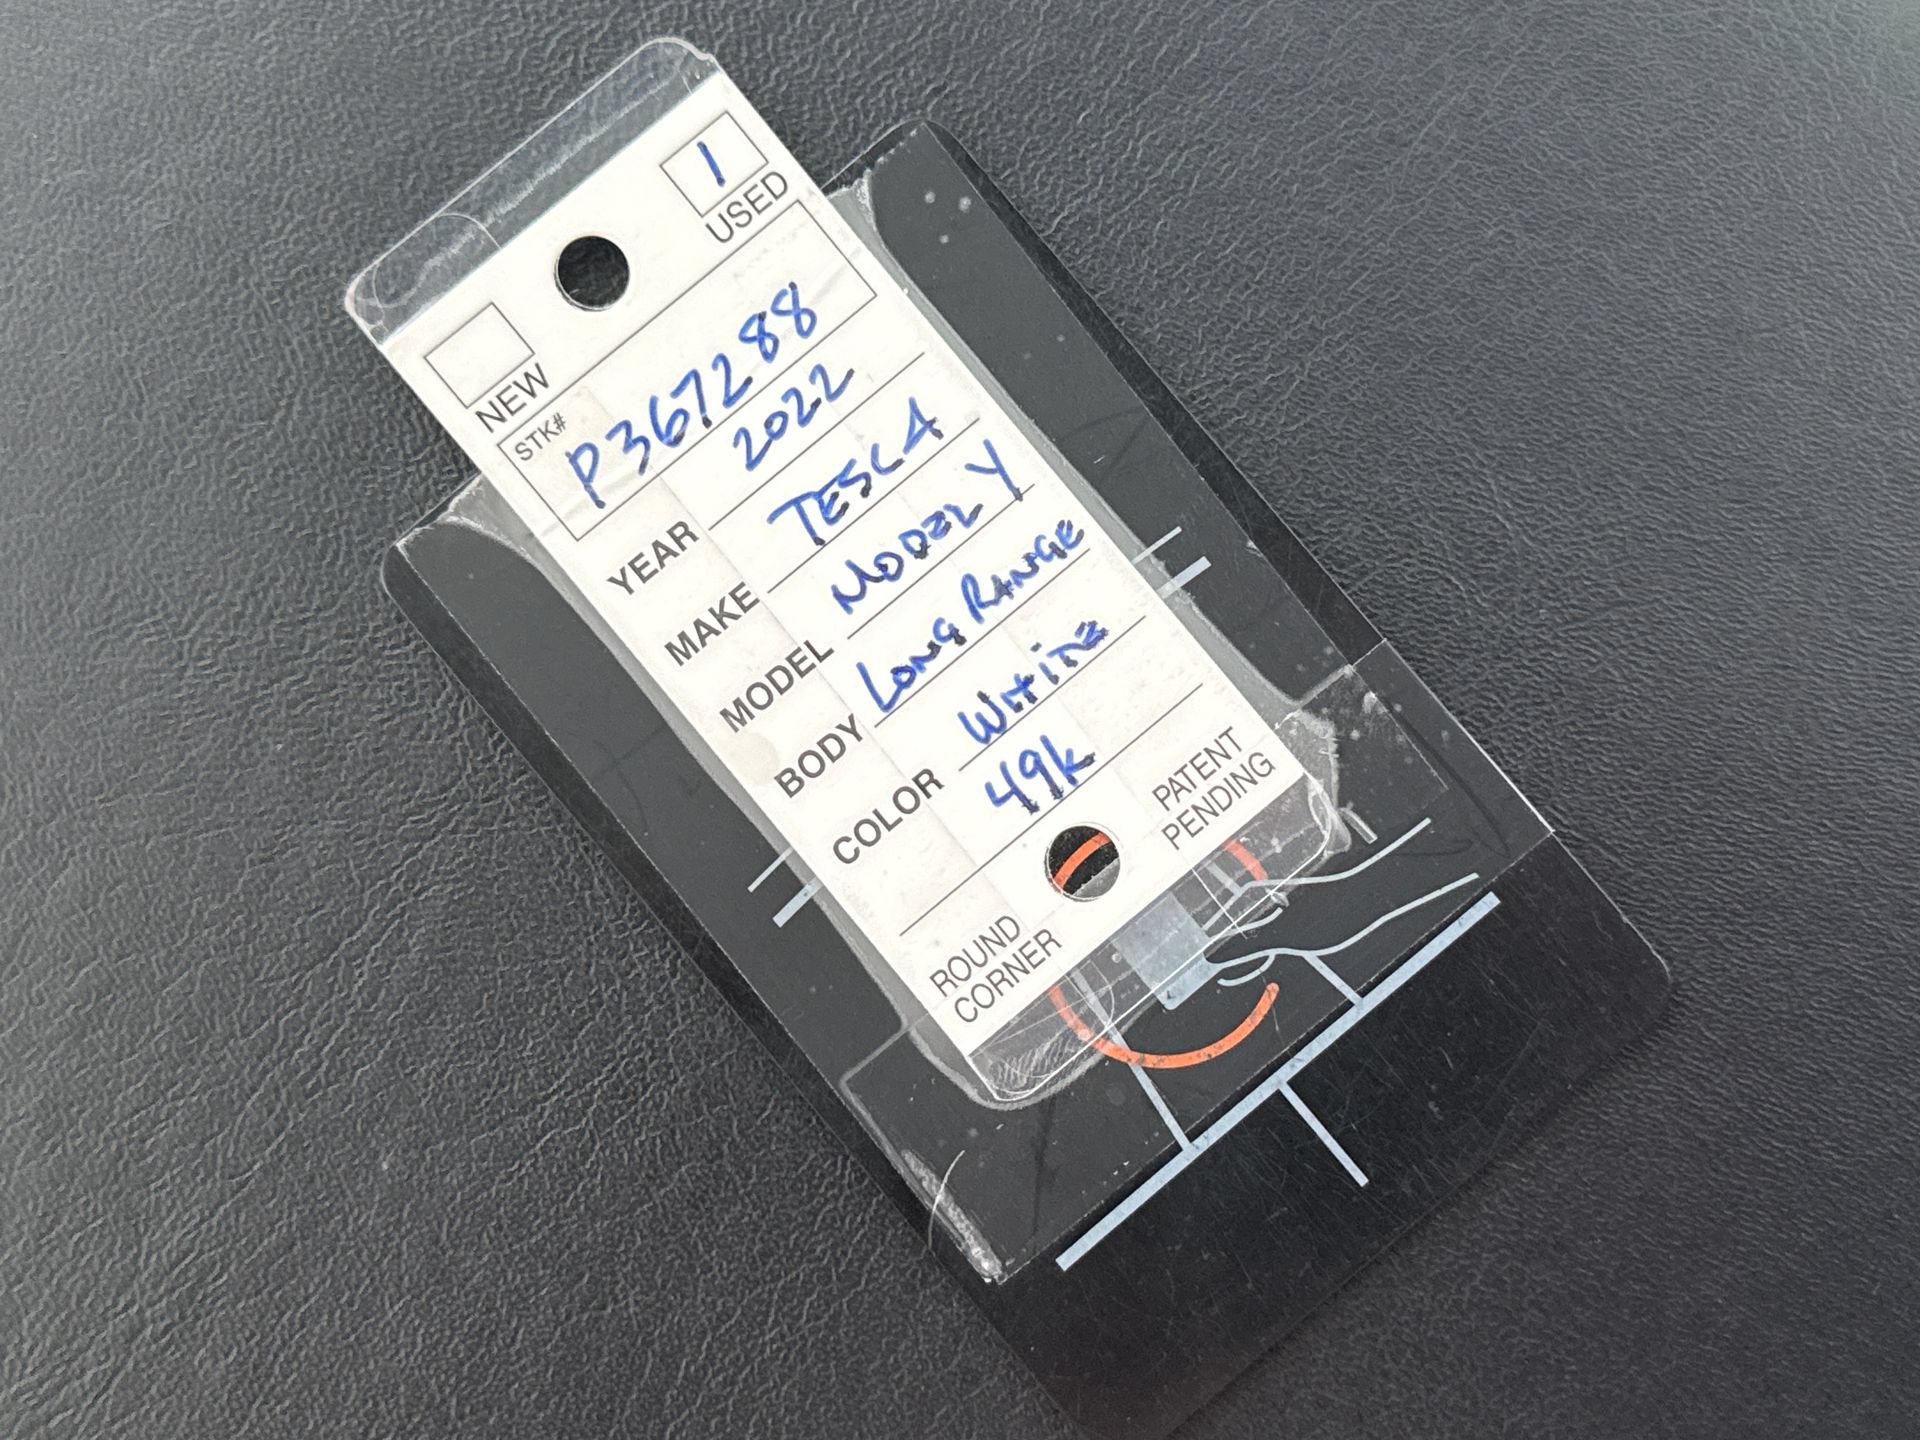 1
NEW USED
STK# P367288
YEAR 2022
MAKE TESLA
MODEL MODEL Y
BODY LONG RANGE
COLOR WHITE
49k
ROUND CORNER
PATENT PENDING